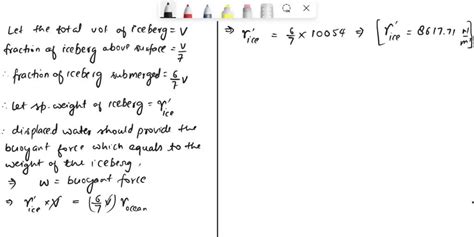 Let the total vol of iceberg = V
fraction of iceberg above surface = V/7
∴ fraction of iceberg submerged = 6/7 V
∴ Let sp. weight of iceberg = r'ice
∴ displaced water should provide the
buoyant force which equals to the
weight of the iceberg,
⇒ w = buoyant force
⇒ r'ice × V = (6/7 V) rocean
⇒ r'ice = 6/7 × 10054 ⇒ [r'ice = 8617.71 N/m³]